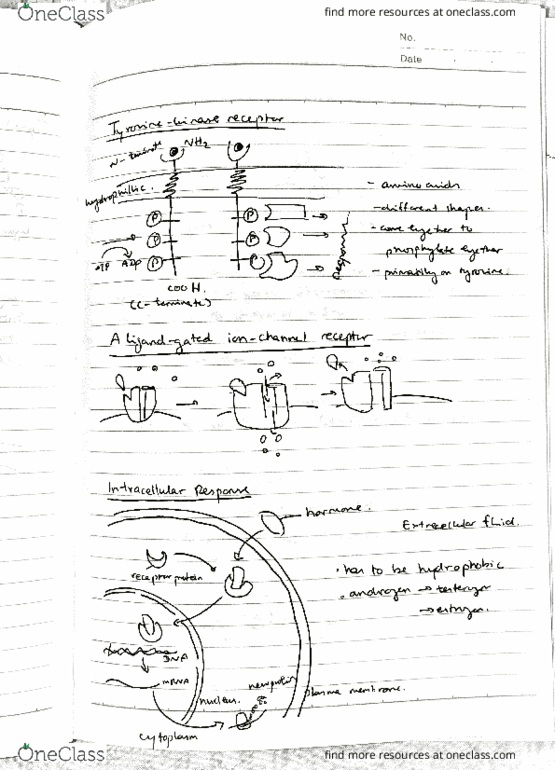 OneClass
find more resources at oneclass.com
No.
Date
Tyrosine-kinase receptor
NH2
hydrophillic.
P P
P P
ATP ADP P P
COOH.
(C-terminate)
- amino acids
- different shapes.
- come together to
phosphylate together
- primatily on tyrosine.
A ligand-gated ion-channel receptor
Intracellular Response
hormone.
Extracellular fluid.
receptor protein
• has to be hydrophobic
• androgen →
→
DNA
mRNA
nucleus.
new protein
plasma membrane.
cytoplasm
OneClass
find more resources at oneclass.com